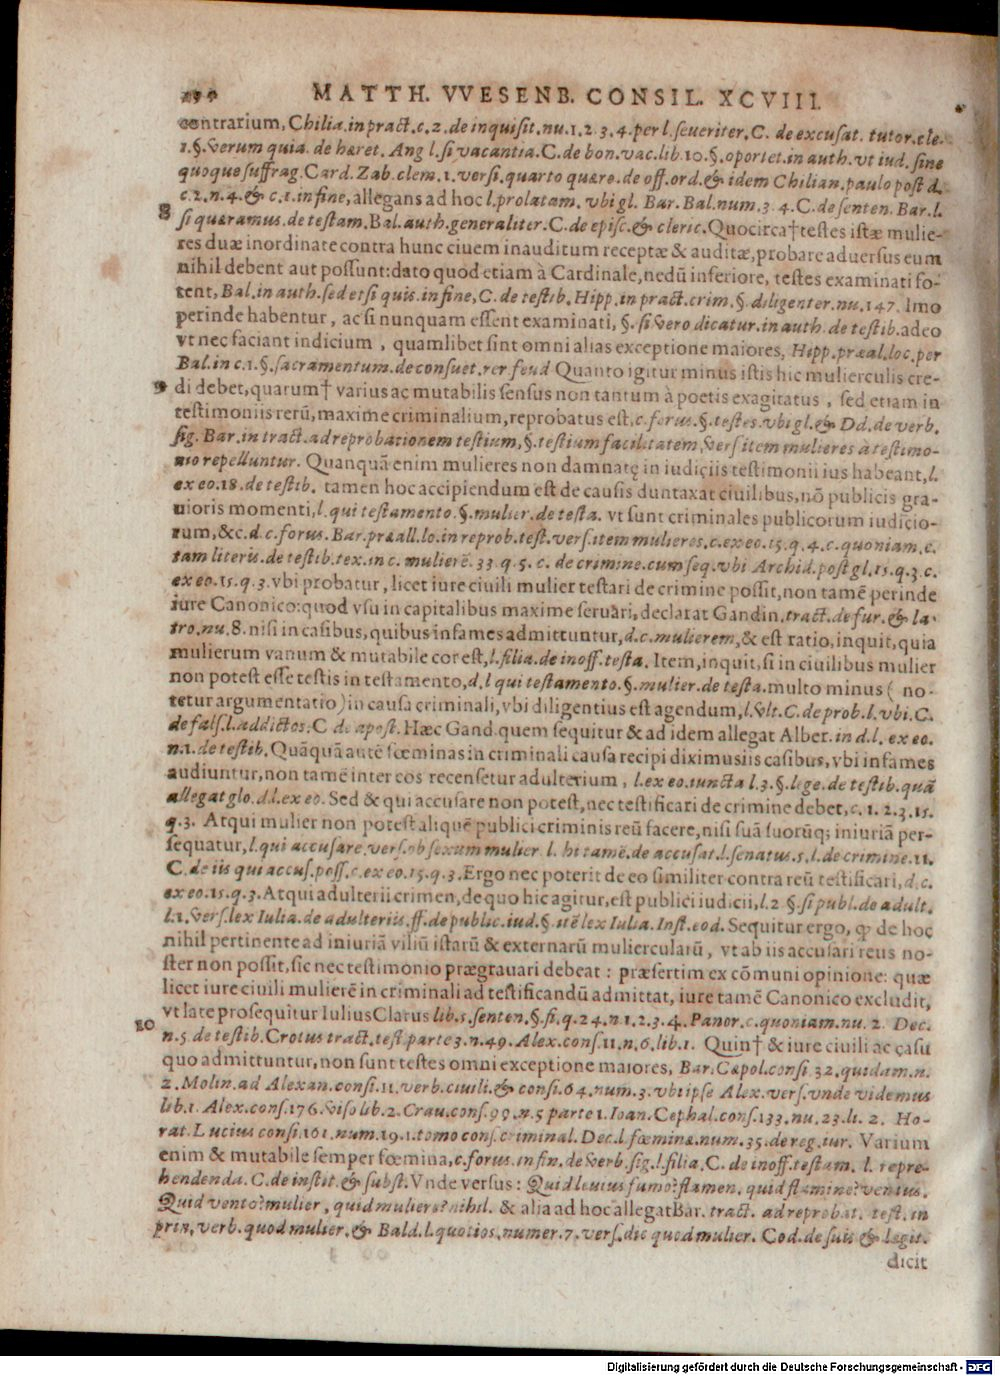 MATTH. VVESENB. CONSIL. XCVIII.
contrarium, Chilia. in pract. c. 2. de inquisit. nu. 1. 2. 3. 4. per l. seueriter. C. de excusat. tutor. ele.
1. §. verum quia. de hæret. Ang l. si vacantia. C. de bon. vac. lib. 10. §. oportet. in auth. vt iud. sine
quoque suffrag. Card. Zab. clem. 1. versi. quarto quæro. de off. ord. & idem Chilian. paulo post d.
c. 2. n. 4. & c. 1. in fine, allegans ad hoc l. prolatam. vbi gl. Bar. Bal. num. 3. 4. C. de senten. Bar. l.
8 si quæramus. de testam. Bal. auth. generaliter. C. de episc. & cleric. Quocirca† testes istæ mulie-
res duæ inordinate contra hunc ciuem inauditum receptæ & auditæ, probare aduersus eum
nihil debent aut possunt: dato quod etiam à Cardinale, nedũ inferiore, testes examinati fo-
rent, Bal. in auth. sed et si quis. in fine, C. de testib. Hipp. in pract. crim. §. diligenter. nu. 147. Imo
perinde habentur, ac si nunquam essent examinati, §. si vero dicatur. in auth. de testib. adeo
vt nec faciant indicium, quamlibet sint omni alias exceptione maiores, Hipp. præal. loc. per
Bal. in c. 1. §. sacramentum. de consuet. rer feud Quanto igitur minus istis hic mulierculis cre-
9 di debet, quarum† varius ac mutabilis sensus non tantum à poetis exagitatus, sed etiam in
testimoniis rerũ, maxime criminalium, reprobatus est, c. forus. §. testes. vbi gl. & Dd. de verb.
sig. Bar. in tract. ad reprobationem testium, §. testium facilitatem, vers item mulieres à testimo-
nio repelluntur. Quanquã enim mulieres non damnatę in iudiçiis testimonii ius habeant, l.
ex eo. 18. de testib. tamen hoc accipiendum est de causis duntaxat ciuilibus, nõ publicis gra-
uioris momenti, l. qui testamento. §. mulier. de testa. vt sunt criminales publicorum iudicio-
rum, &c. d. c. forus. Bar. præall. lo. in reprob. test. vers. item mulieres. c. ex eo. 15. q. 4. c. quoniam. c.
tam literis. de testib. tex. in c. mulierẽ. 33. q. 5. c. de crimine. cum seq. vbi Archid. post gl. 15. q. 3. c.
ex eo. 15. q. 3. vbi probatur, licet iure ciuili mulier testari de crimine possit, non tamẽ perinde
iure Canonico: quod vsu in capitalibus maxime seruari, declarat Gandin. tract. de fur. & la-
tro. nu. 8. nisi in casibus, quibus infames admittuntur, d. c. mulierem, & est ratio, inquit, quia
mulierum vanum & mutabile cor est, l. filia. de inoff. testa. Item, inquit, si in ciuilibus mulier
non potest esse testis in testamento, d. l qui testamento. §. mulier. de testa. multo minus ( no-
tetur argumentatio) in causa criminali, vbi diligentius est agendum, l. vlt. C. de prob. l. vbi. C.
de fals. l. addictos. C de apost. Hæc Gand. quem sequitur & ad idem allegat Alber. in d. l. ex eo.
n. 1. de testib. Quãquã autẽ fœminas in criminali causa recipi diximus iis casibus, vbi infames
audiuntur, non tamẽ inter eos recensetur adulterium, l. ex eo. iuncta l. 3. §. lege. de testib. quã
allegat glo. d. l. ex eo. Sed & qui accusare non potest, nec testificari de crimine debet, c. 1. 2. 3. 15.
q. 3. Atqui mulier non potest aliquẽ publici criminis reũ facere, nisi suã suorũq; iniuriã per-
sequatur, l. qui accusare. vers. ob sexum mulier l. hi tamẽ. de accusat. l. senatus. 5. l. de crimine. 11.
C. de iis qui accus. poss. c. ex eo. 15. q. 3. Ergo nec poterit de eo similiter contra reũ testificari, d. c.
ex eo. 15. q. 3. Atqui adulterii crimen, de quo hic agitur, est publici iudicii, l. 2 §. si publ. de adult.
l. 1. vers. lex Iulia. de adulteriis. ff. de public. iud. §. itẽ lex Iulia. Inst. eod. Sequitur ergo, ꝙ de hoc
nihil pertinente ad iniuriã viliũ istarũ & externarũ muliercularũ, vt ab iis accusari reus no-
ster non possit, sic nec testimonio prægrauari debeat : præsertim ex cõmuni opinione: quæ
licet iure ciuili mulierẽ in criminali ad testificandũ admittat, iure tamẽ Canonico excludit,
vt late prosequitur Iulius Clarus lib. 5. senten. §. fi. q. 24. n 1. 2. 3. 4. Panor. c. quoniam. nu. 2. Dec.
10 n. 5. de testib. Crotus tract. test. parte 3. n. 49. Alex. cons. 11. n. 6. lib. 1. Quin† & iure ciuili ac çasu
quo admittuntur, non sunt testes omni exceptione maiores, Bar. Cæpol. consi. 32. quidam. n.
2. Molin. ad Alexan. consi. 11. verb. ciuili. & consi. 64. num. 3. vbi ipse Alex. vers. vnde videmus
lib. 1. Alex. cons. 176. viso lib. 2. Crau. cons. 99. n. 5 parte 1. Ioan. Cephal. cons. 133. nu. 23. li. 2. Ho-
rat. Lucius consi. 161. num. 19. 1. tomo cons. criminal. Dec. l. fœminæ. num. 35. de reg. iur. Varium
enim & mutabile semper fœmina, c. forus. in fin. de verb. sig. l. filia. C. de inoff. testam. l. repre-
hendenda. C. de instit. & subst. Vnde versus: Quid leuius fumo? flamen. quid flamine? ventus.
Quid vento? mulier, quid muliere? nihil. & alia ad hoc allegat Bar. tract. ad reprobat. test. in
prin. verb. quod mulier. & Bald. l. quotios. numer. 7. vers. dic quod mulier. Cod. de suis & legit.
dicit
Digitalisierung gefördert durch die Deutsche Forschungsgemeinschaft - DFG